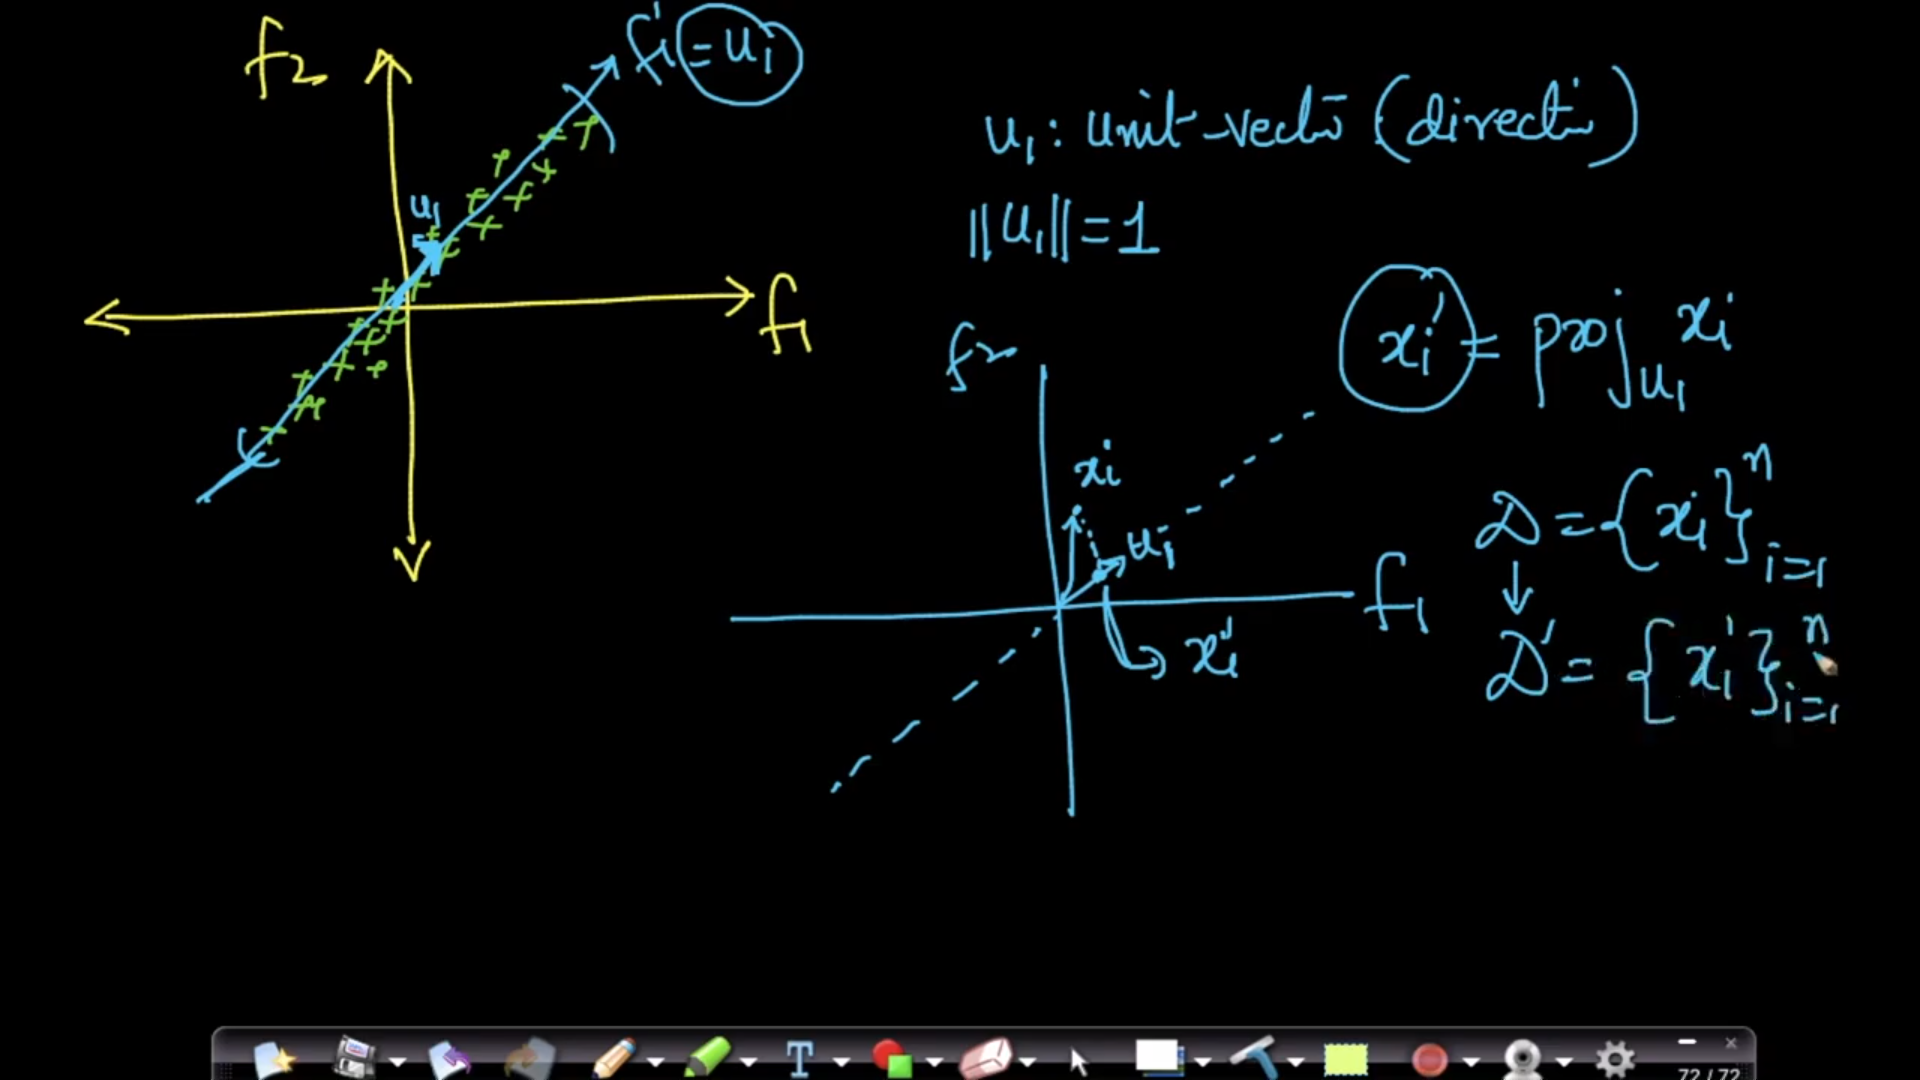 f₂
f₁' = u₁
u₁
f₁
u₁: unit-vector (directi)
||u₁|| = 1
xᵢ' = proj_u₁ xᵢ
f₂
xᵢ
u₁
f₁
xᵢ'
D = {xᵢ}ⁿᵢ₌₁
↓
D' = {xᵢ'}ⁿᵢ₌₁
T
72 / 72